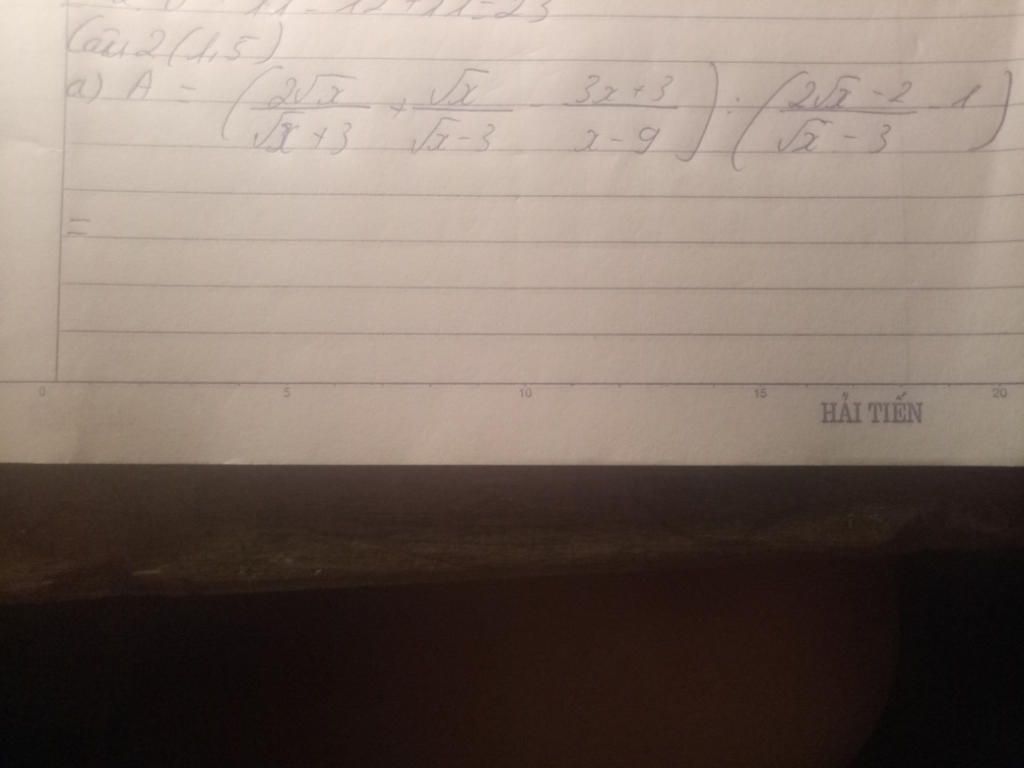 11 = 12 + 11 = 23
Câu 2 (1,5)
a) A = (2√x/√x+3 + √x/√x-3 - 3x+3/x-9) : (2√x-2/√x-3 - 1)
=
0 5 10 15 20
HẢI TIẾN